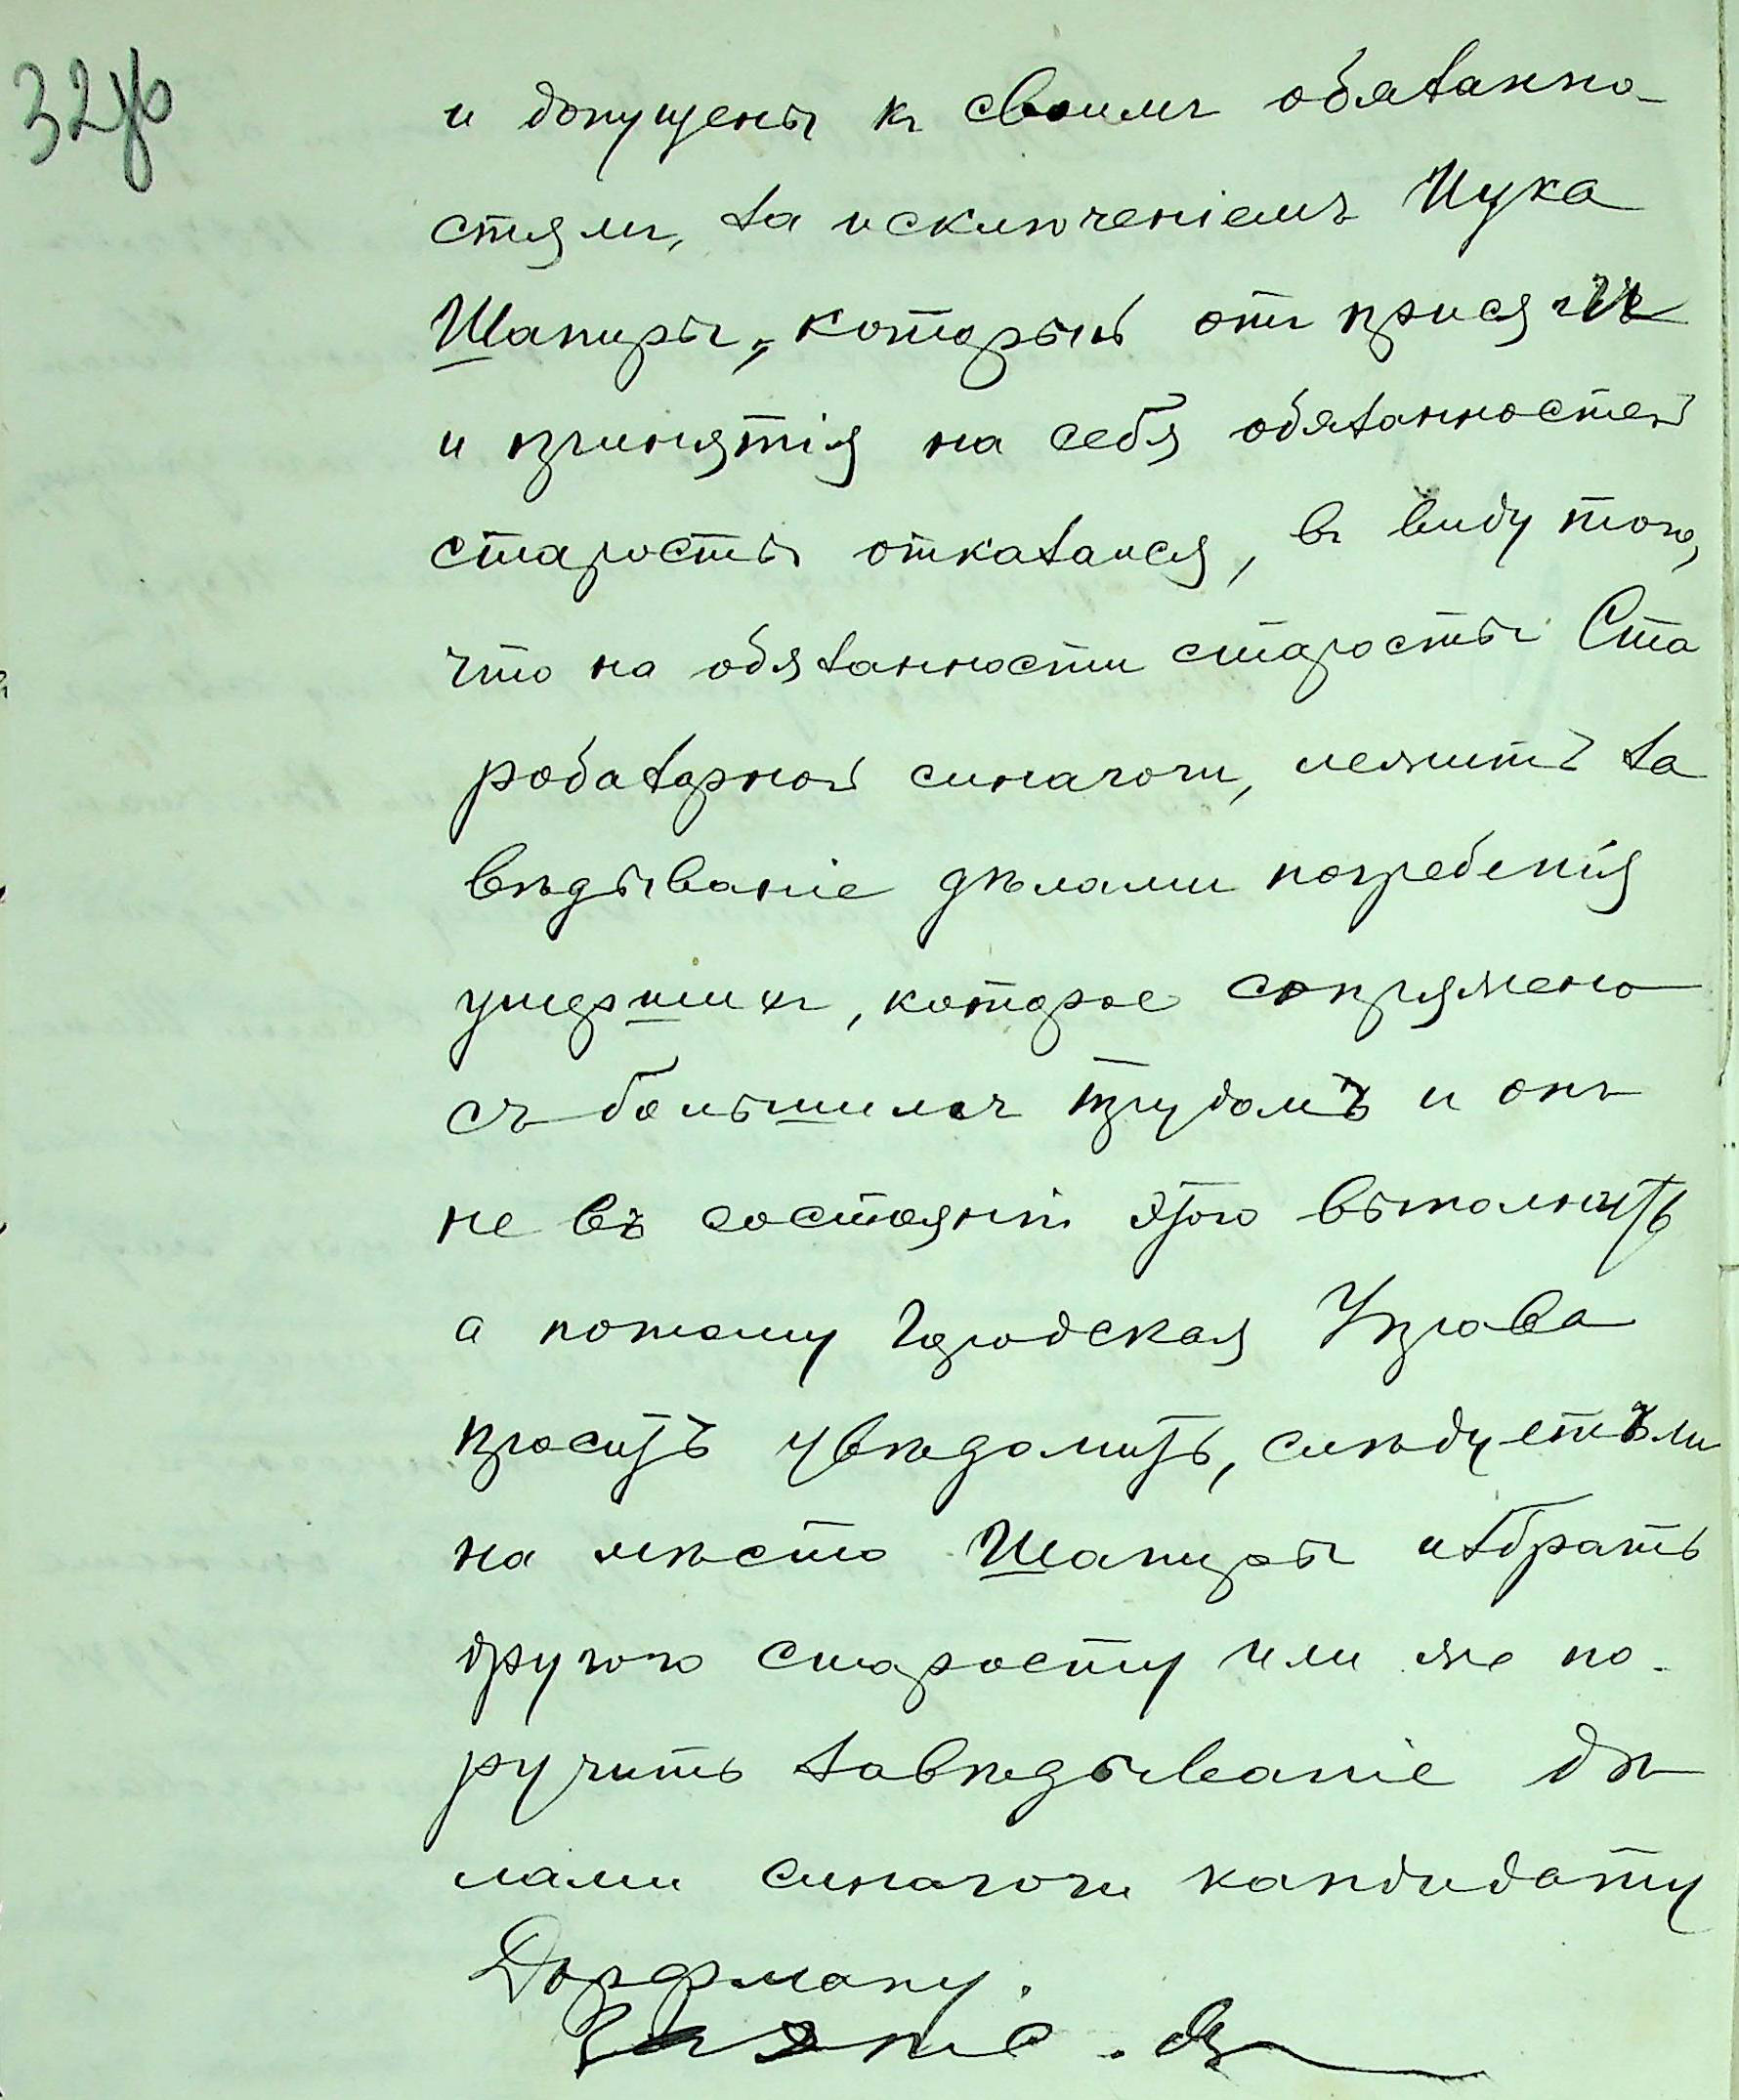 32об
и допущены къ своимъ обязанно-
стямъ, за исключеніемъ Ицка
Шапиры, который отъ присяги
и принятія на себя обязанностей
старосты отказался, въ виду того,
что на обязанности старосты Ста
робазарной синагоги, лежитъ за
вѣдываніе дѣлами погребенія
умершихъ, которое сопряжено
съ большимъ трудомъ и онъ
не въ состояніи этого выполнить
а потому Городская Управа
проситъ увѣдомить, слѣдуетъ ли
на мѣсто Шапиры избрать
другого старосту или же по-
ручить завѣдываніе дѣ
лами синагоги кандидату
Дорфману.